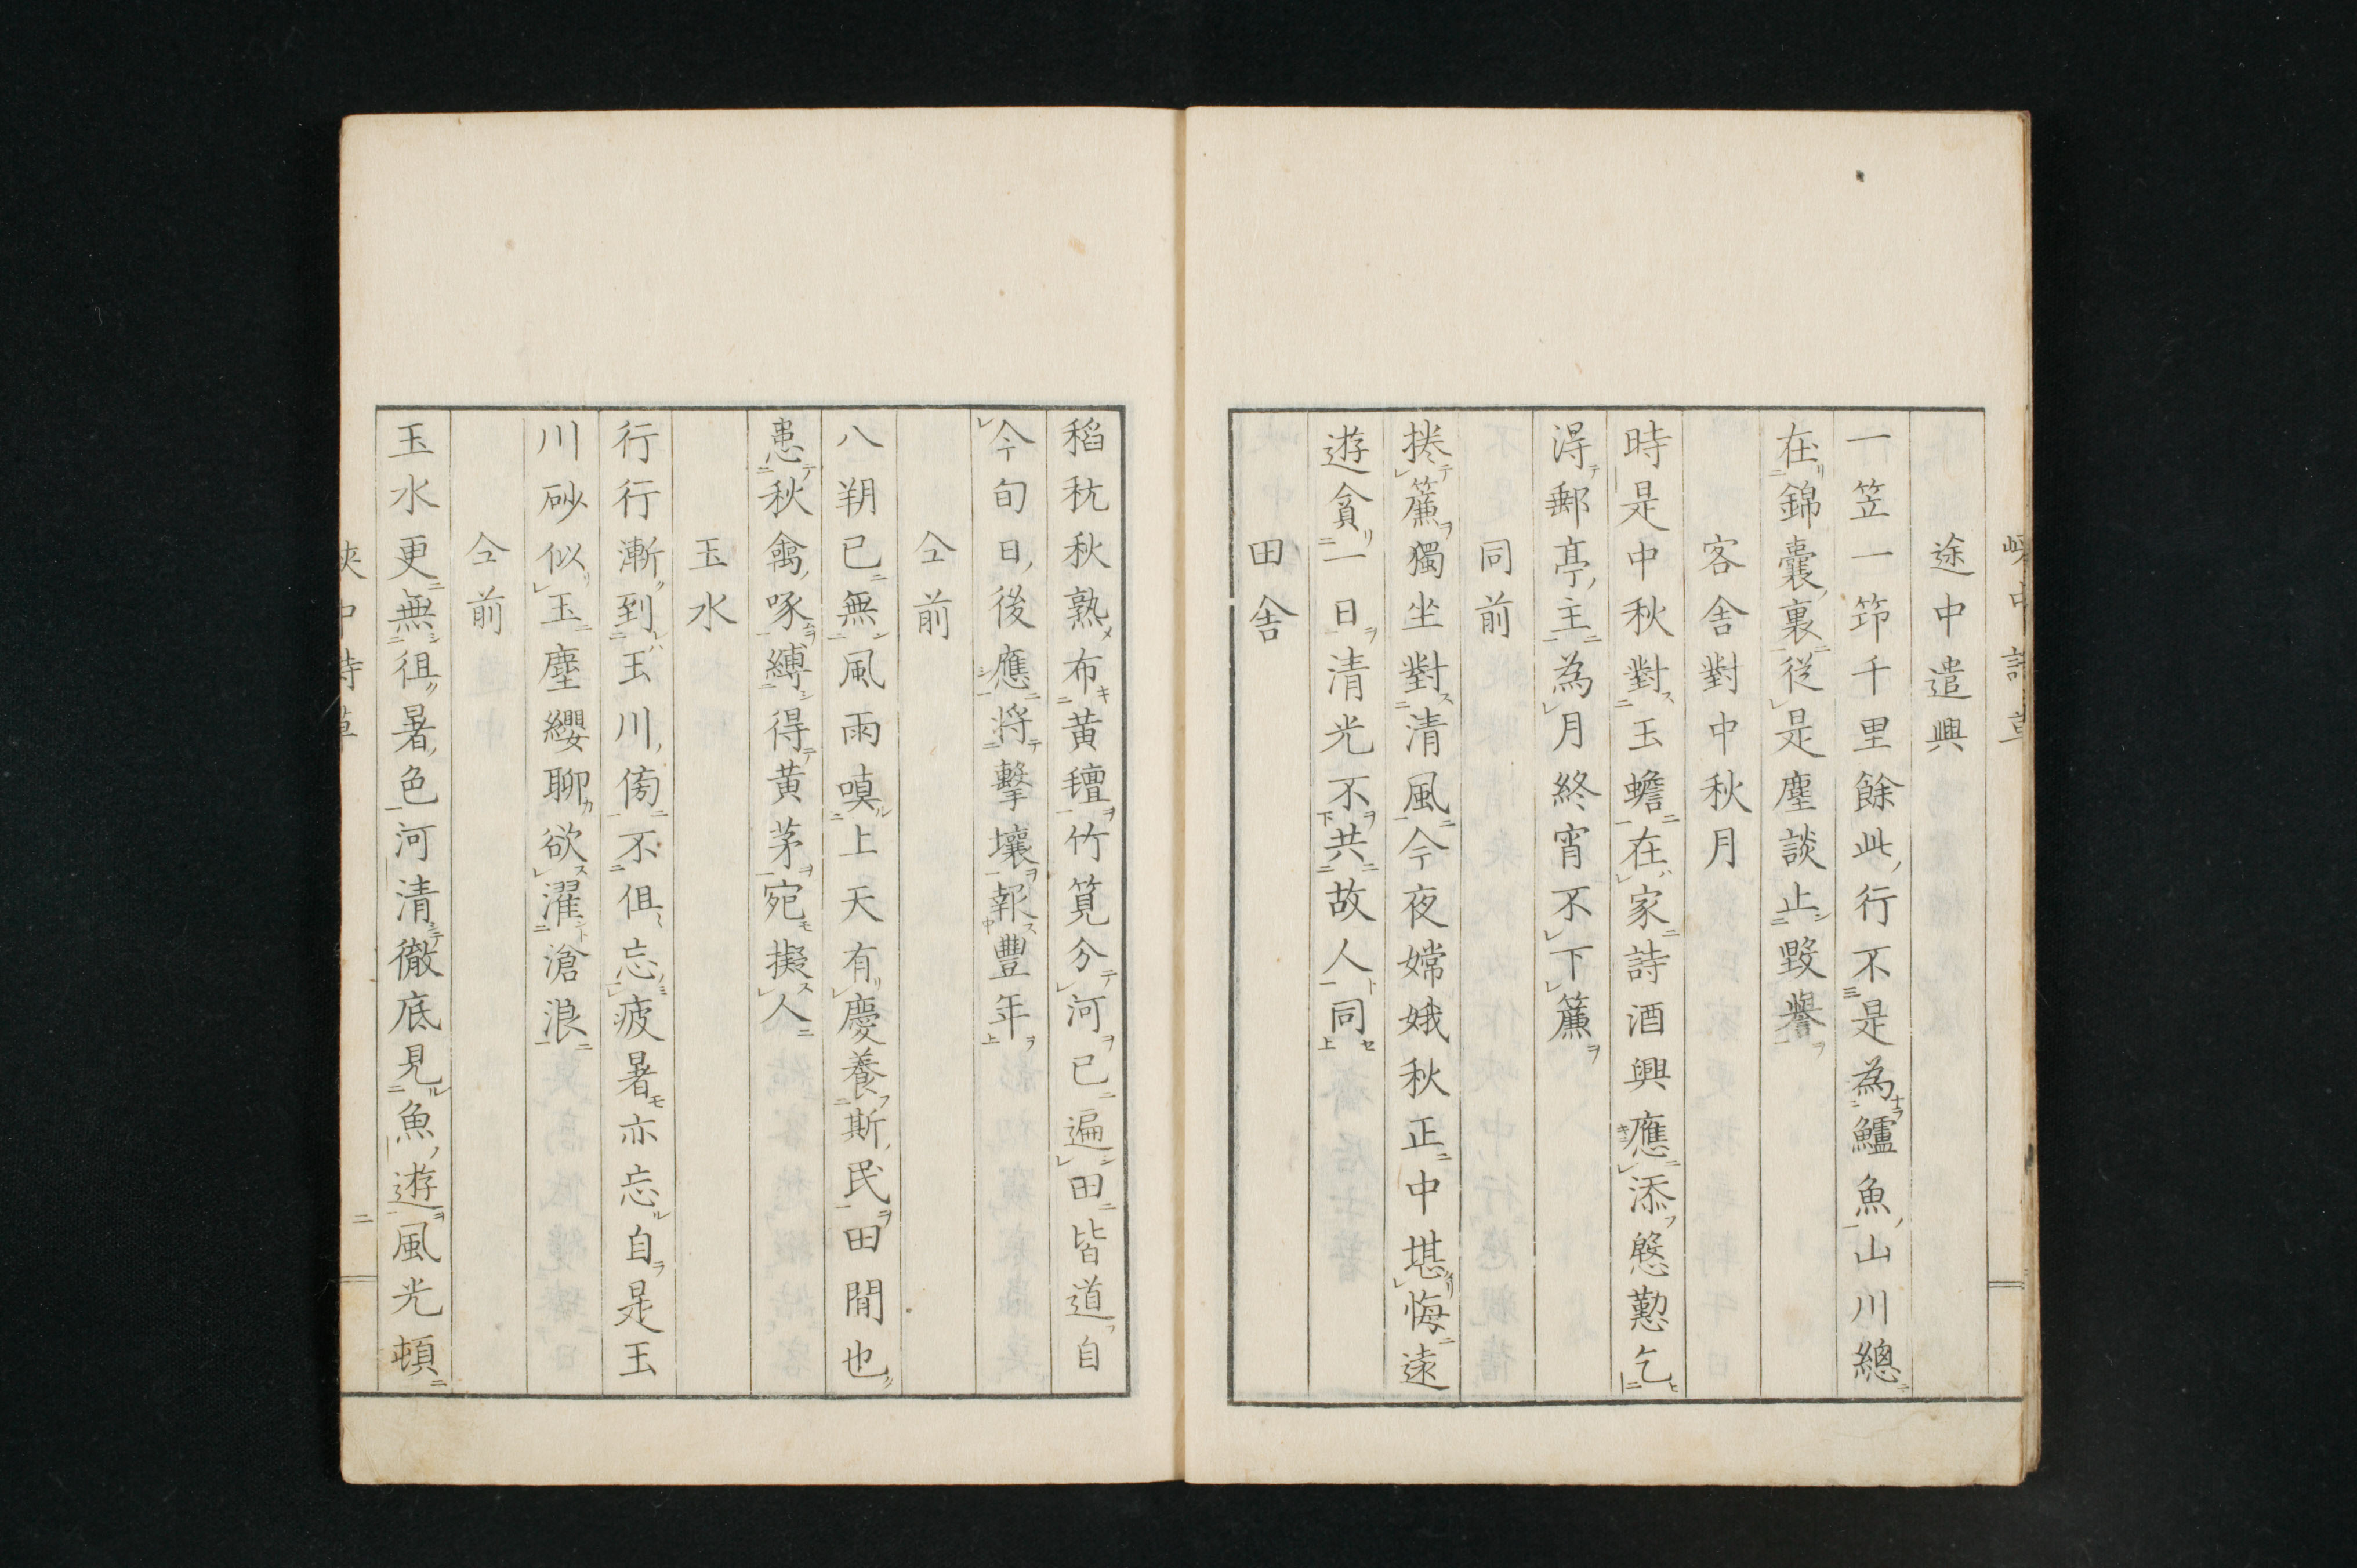 途中遣興
一笠一笻千里餘此行不是為鱸魚山川總
在錦囊裏從是塵談止毀譽
客舎對中秋月
時是中秋對玉蟾在家詩酒興應添慇懃乞
得郵亭主為月終宵不下簾
同前
捲簾獨坐對清風今夜嫦娥秋正中堪悔遠
遊貪一日清光不共故人同
田舎
稻秔秋熟布黃氊竹筧分河已遍田皆道自
今旬日後應將擊壤報豐年
仝前
八朔已無風雨嗔上天有慶養斯民田間也
患秋禽啄縛得黃茅宛擬人
玉水
行行漸到玉川傍不但忘疲暑亦忘自是玉
川砂似玉塵纓聊欲濯滄浪
仝前
玉水更無徂暑色河清徹底見魚遊風光頓
二